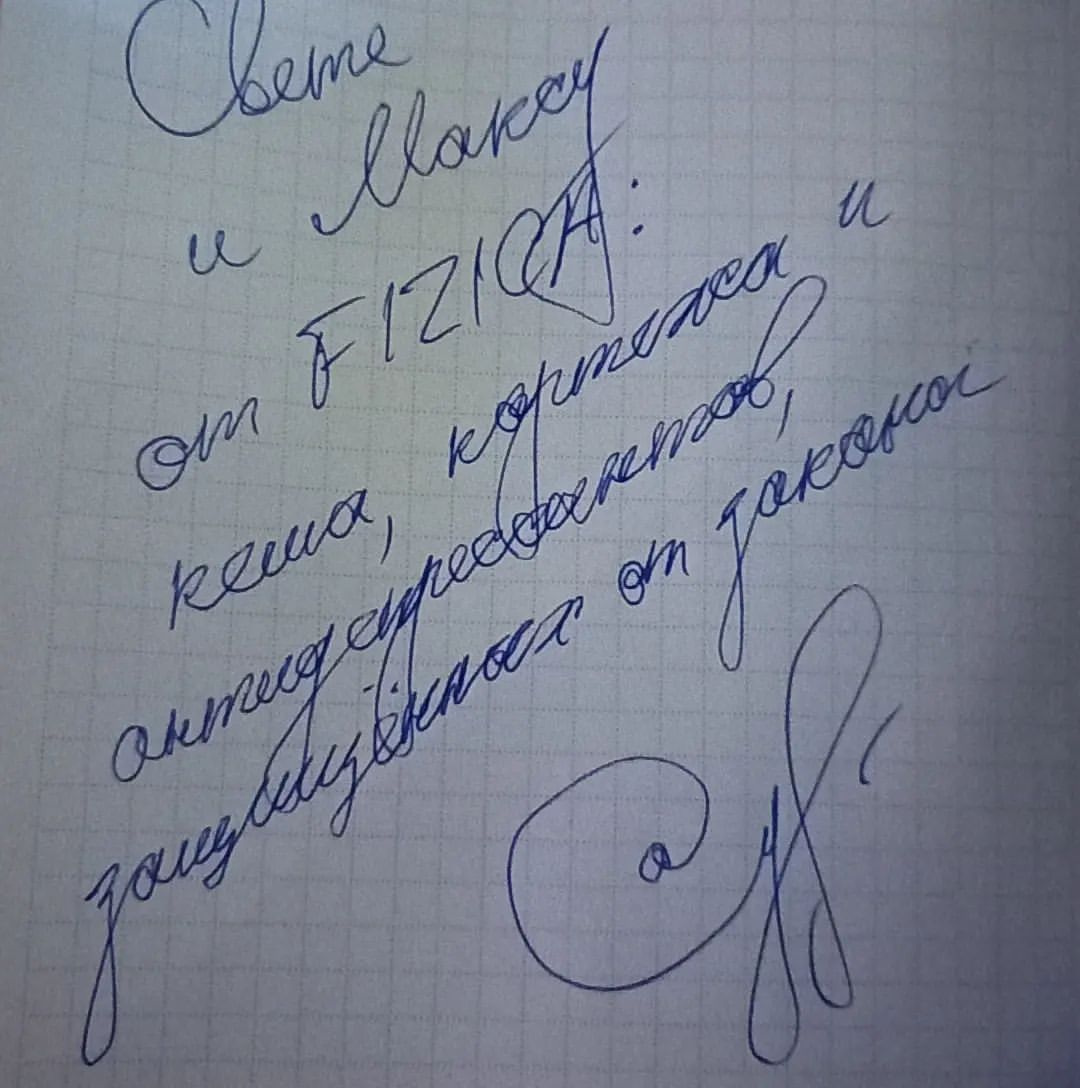 Свете
и Максу
от FIZICA:
кеша, кортежа и
антидепрессантов,
защищённых от закона